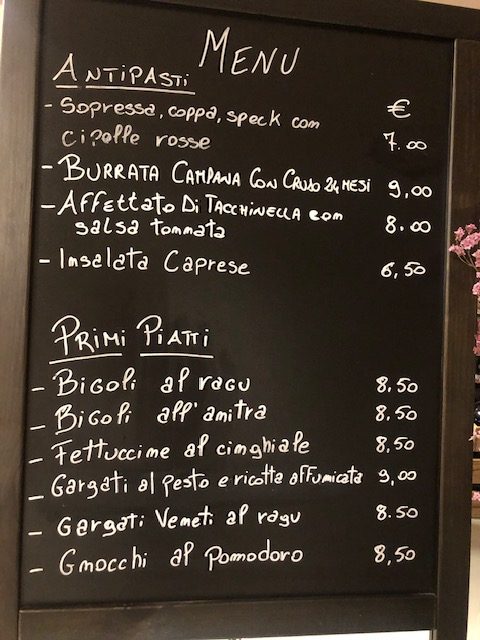 MENU
ANTIPASTI
- Sopressa, coppa, speck con €
cipolle rosse 7.00
- BURRATA CAMPANA CON CRUDO 24 MESI 9,00
- Affettato Di TACCHINELLA con 8.00
salsa tonnata
- Insalata Caprese 6,50
PRIMI PIATTI
- Bigoli al ragu 8.50
- Bigoli all'anitra 8.50
- Fettuccine al cinghiale 8,50
- Gargati al pesto e ricotta affumicata 9,00
- Gargati Veneti al ragu 8.50
- Gnocchi al Pomodoro 8,50